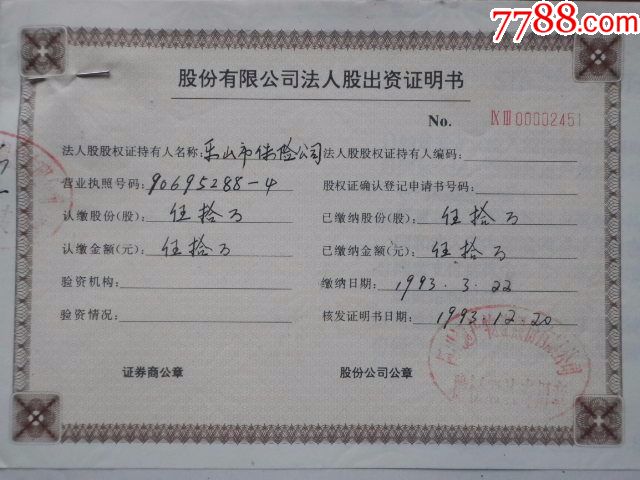 7788.com
股份有限公司法人股出资证明书
No. IXⅢ00002451
法人股股权证持有人名称:乐山市保险公司 法人股股权证持有人编码:
营业执照号码:90695288-4 股权证确认登记申请书号码:
认缴股份(股):伍拾万 已缴纳股份(股):伍拾万
认缴金额(元):伍拾万 已缴纳金额(元):伍拾万
验资机构: 缴纳日期:1993.3.22
验资情况: 核发证明书日期:1993.12.20
证券商公章 股份公司公章